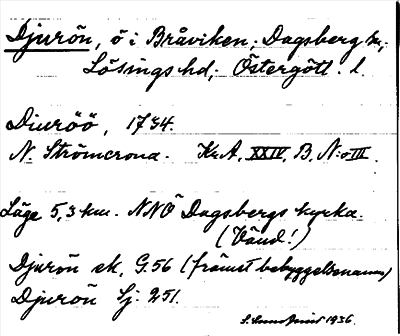 Djurön, ö i Bråviken; Dagsberg sn;
Lösings hd; Östergötl. l.
Diuröö, 1734.
N. Strömcrona. Kr.A. XXIV, B, N:o III.
Läge 5,3 km. NNÖ Dagsbergs kyrka.
(Vänd!)
Djurön ek, G.56 (främst bebyggelsenamn)
Djurön Sj: 251.
1936.